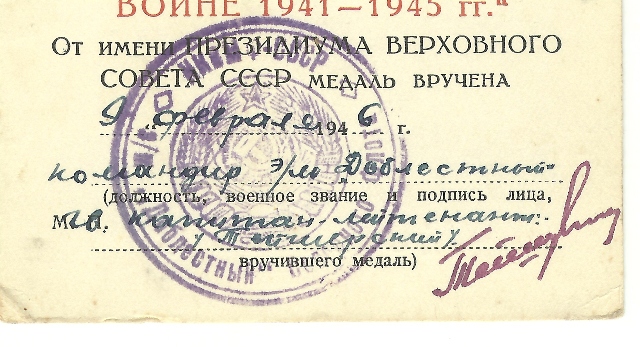 ВОЙНЕ 1941—1945 гг."
От имени ПРЕЗИДИУМА ВЕРХОВНОГО
СОВЕТА СССР МЕДАЛЬ ВРУЧЕНА
9 февраля 1946 г.
командир э/м Доблестный
(должность, военное звание и подпись лица,
М. капитан лейтенант
вручившего медаль)